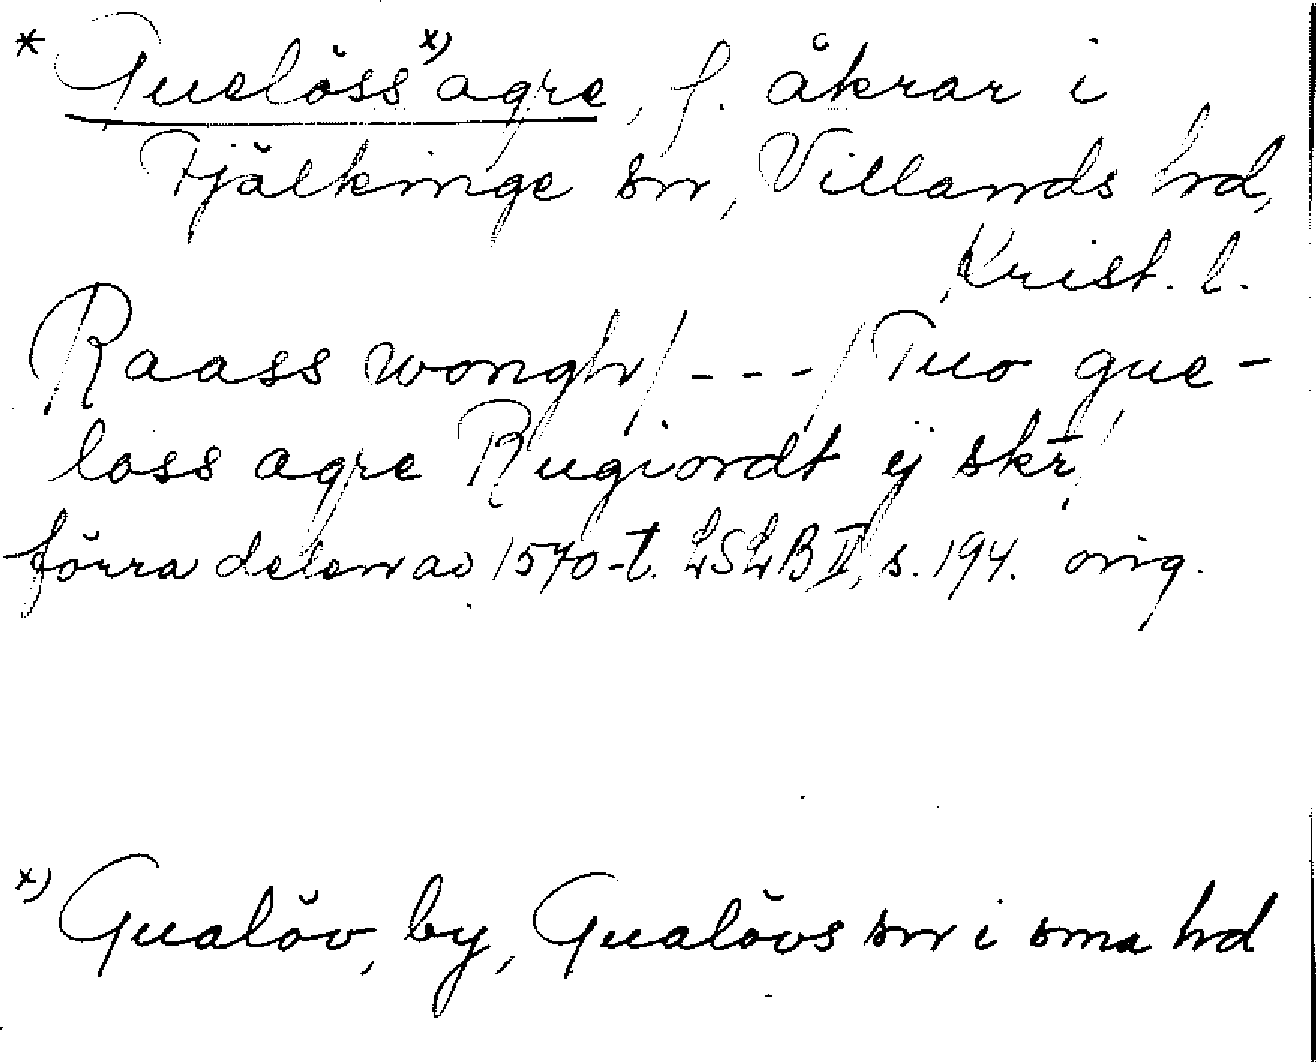 * Guelöss x) agre, f. åkrar i
Fjälkinge sn, Villands hd,
Krist. l.
Raass wongh/---/Tuo gue-
löss agre Rugiordt ij skr̄/
förra delen av 1570-t. LSLB II, s. 194. orig.
x) Gualöv, by, Gualövs sn i sma hd